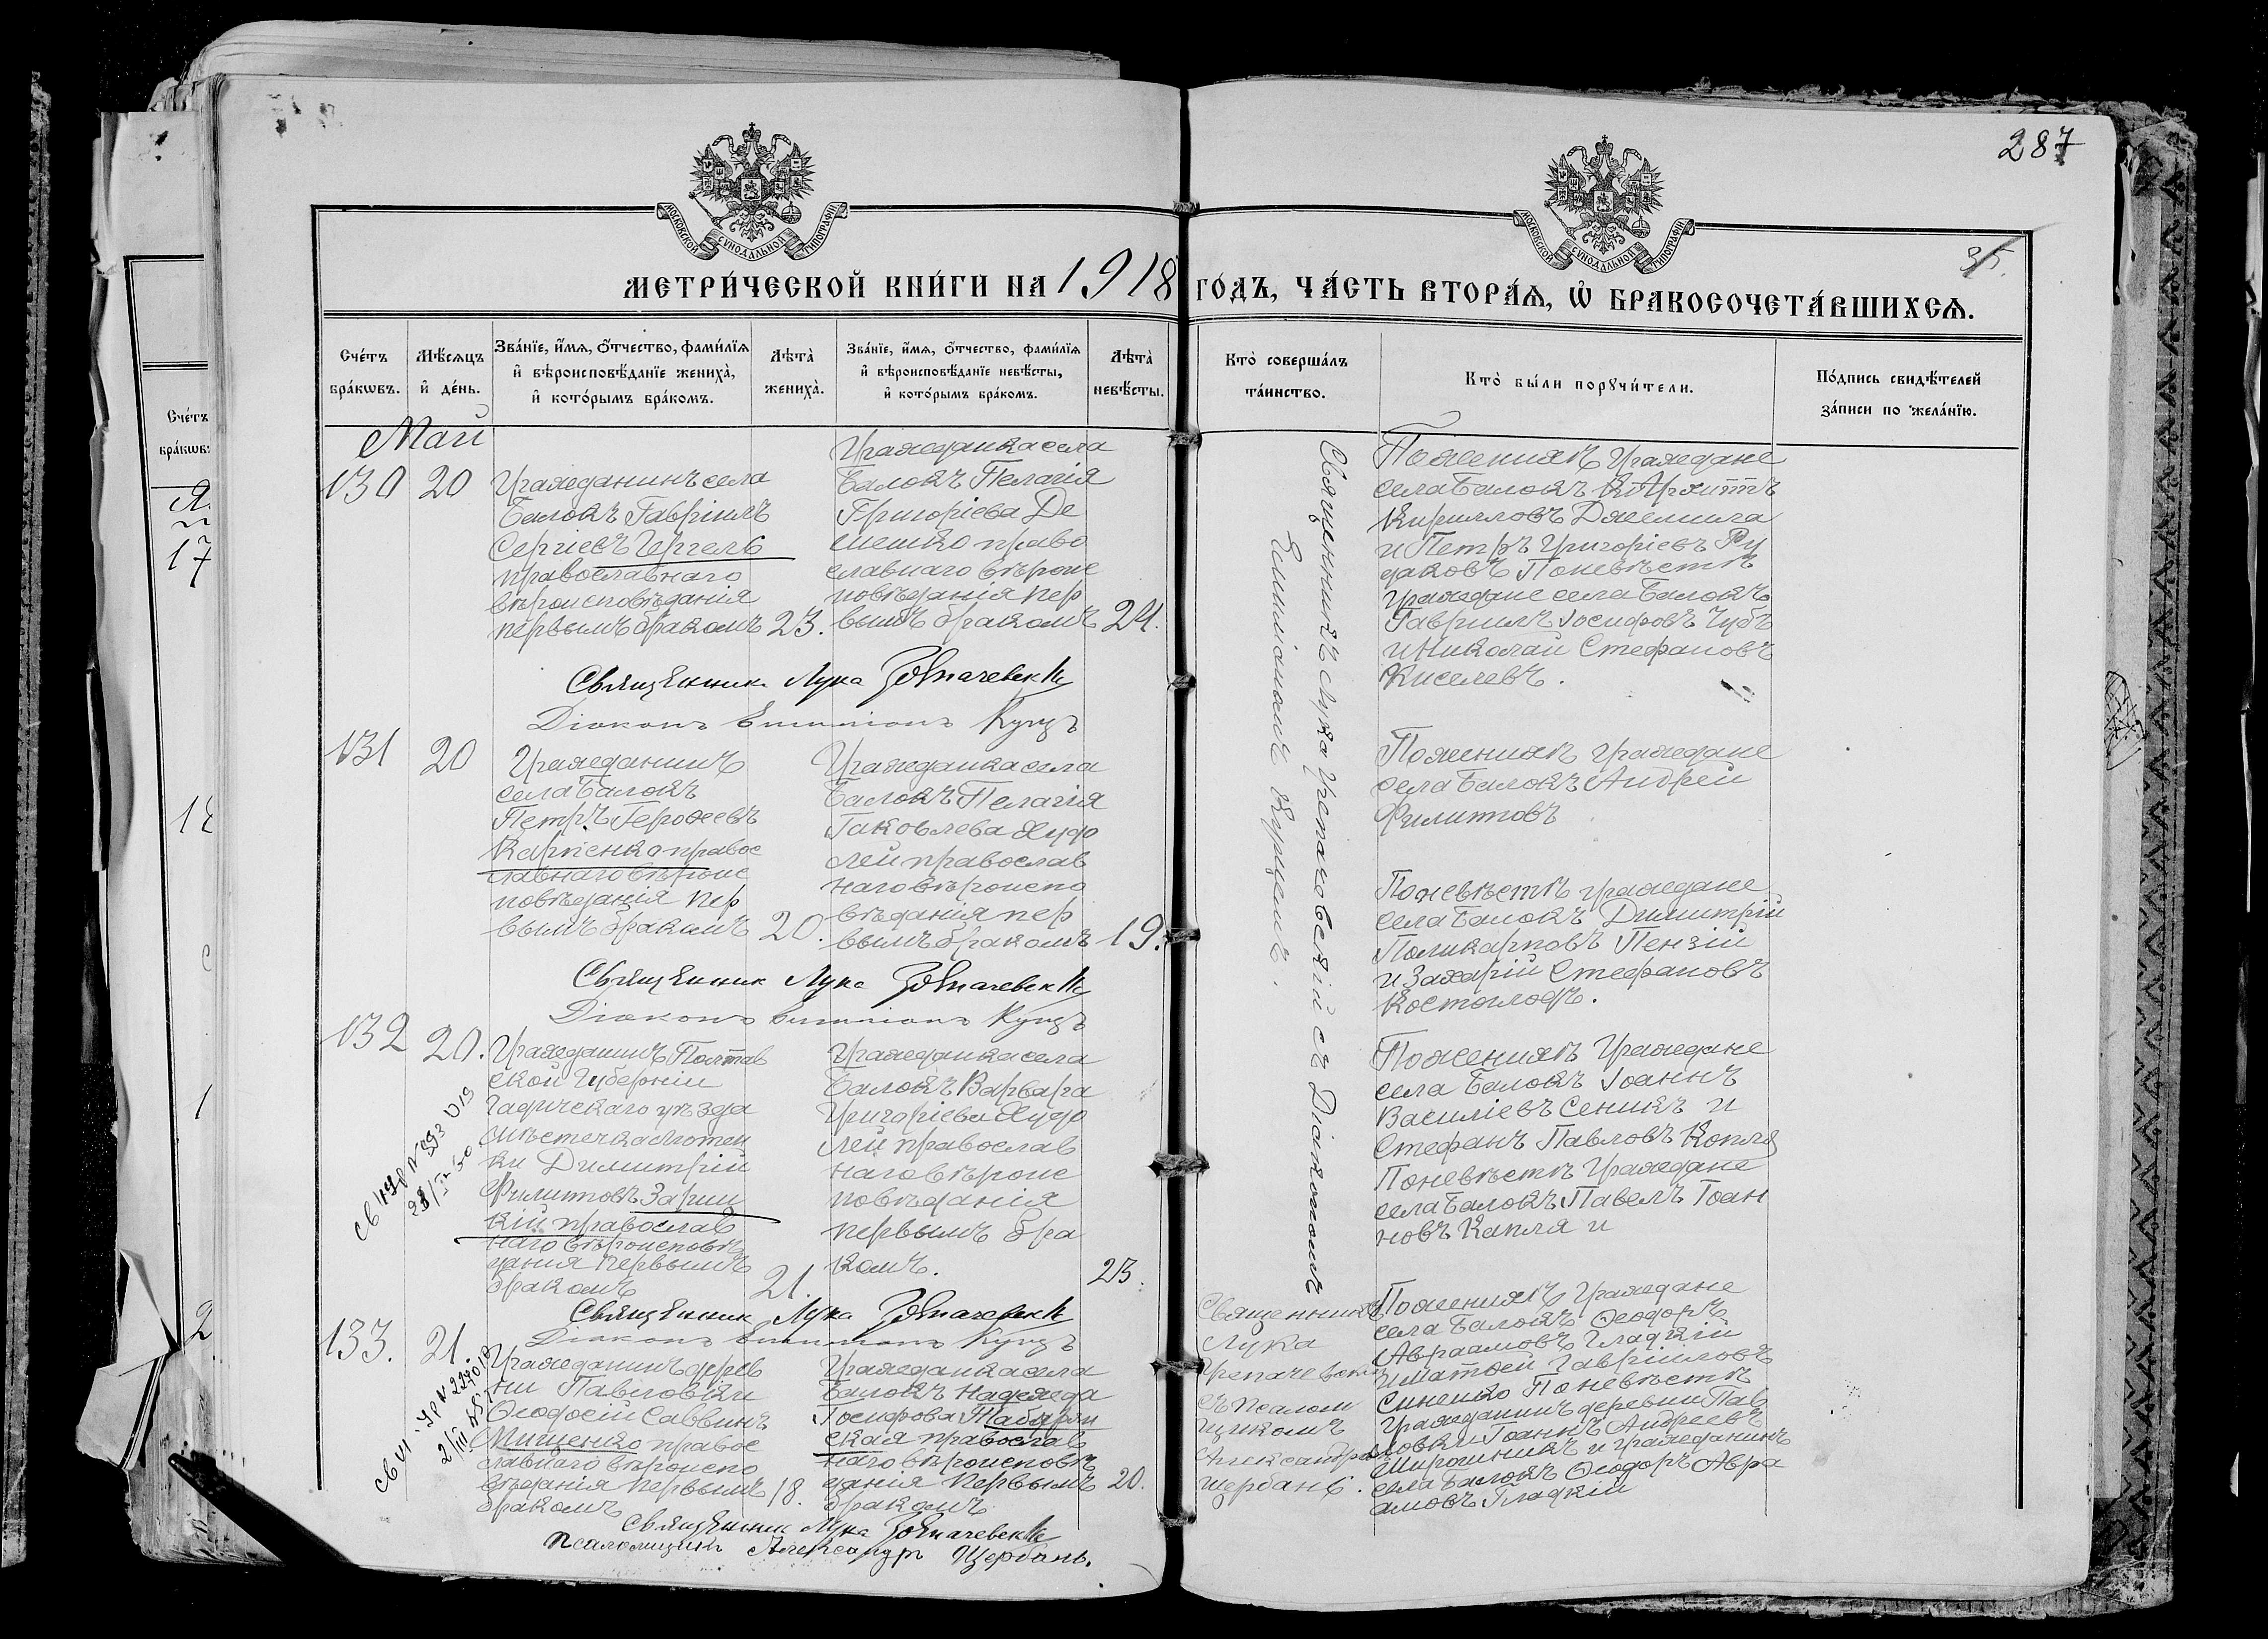 287
35.
МОСКОВСКОЙ СѴНОДАЛЬНОЙ ТИПОГРАФІИ
МОСКОВСКОЙ СѴНОДАЛЬНОЙ ТИПОГРАФІИ
МЕТРИ́ЧЕСКОЙ КНИ́ГИ НА 1918 ГО́ДЪ, ЧА́СТЬ ВТОРА́Я, Ѡ҆ БРАКОСОЧЕТА́ВШИХСѦ.
Сче́тъ бра́кωвъ.
Мѣ́сѧцъ и҆ де́нь.
Зва́нїе, и҆́мѧ, ѻ҆́тчество, фами́лїѧ
и҆ вѣроисповѣ́данїе жениха̀,
и҆ кото́рымъ бра́комъ.
Лѣта̀ жениха̀.
Зва́нїе, и҆́мѧ, ѻ҆́тчество, фами́лїѧ
и҆ вѣроисповѣ́данїе невѣ́сты,
и҆ кото́рымъ бра́комъ.
Лѣта̀ невѣ́сты.
Кто̀ соверша́лъ
та́инство.
Кто̀ бы́ли порꙋчи́тели.
По́дпись свидѣ́телей
за́писи по жела́нїю.
Май
130
20
Гражданинъ села
Балокъ Гавріилъ
Сергіевъ Гергель
православнаго
вѣроисповѣданія
первымъ бракомъ
23.
Гражданка села
Балокъ Пелагія
Григоріева Де
мешко право
славнаго вѣроис
повѣданія пер
вымъ бракомъ
24.
По женихѣ Граждане
села Балокъ
Кирилловъ Джемила
и Петръ Григоріевъ Ру
даковъ По невѣстѣ
Граждане села Балокъ
Гавріилъ Іосифовъ Чубъ
и Николай Стефановъ
Киселевъ.
Священникъ Лука
Діаконъ Емиліанъ Куцъ
131
20
Гражданинъ
села Балокъ
Петръ
Карпенко правос
лавнаго вѣроис
повѣданія пер
вымъ бракомъ
20.
Гражданка села
Балокъ Пелагія
Іаковлева Худо
лей православ
наго вѣроиспо
вѣданія пер
вымъ бракомъ
19.
По женихѣ Граждане
села Балокъ Андрей
Филипповъ
По невѣстѣ граждане
села Балокъ Димитрій
Поликарповъ Пензій
и Захарій Стефановъ
Священникъ Лука
Діаконъ Емиліанъ Куцъ
132
20.
Гражданинъ Полтав
ской Губерніи
Гадячскаго уѣзда
мѣстечка Лютен
ки Димитрій
Филипповъ Зариц
кій православ
наго вѣроисповѣ
данія первымъ
бракомъ
21.
Гражданка села
Балокъ Варвара
Григоріева Худо
лей православ
наго вѣроис
повѣданія
первымъ бра
комъ.
23.
По женихѣ Граждане
села Балокъ Іоаннъ
Василіевъ Сеникъ и
Стефанъ Павловъ Копля
По невѣстѣ Граждане
села Балокъ Павелъ Іоан
новъ Капля и
Священникъ Лука
Діаконъ Емиліанъ Куцъ
съ Діакономъ
Емиліаномъ Куцемъ.
133.
21
Гражданинъ дерев
ни Павловки
Ѳеодосій Саввинъ
Мищенко правос
лавнаго вѣроиспо
вѣданія первымъ
бракомъ
18.
Гражданка села
Балокъ Надежда
Іосифова
ская православ
наго вѣроисповѣ
данія первымъ
бракомъ
20.
Священникъ
Лука
съ Псалом
щикомъ
Александромъ
Щербань.
По женихѣ Граждане
села Балокъ Ѳеодоръ
Авраамовъ Гладкій
и Матфей Гавріиловъ
Синенко По невѣстѣ
Гражданинъ деревни Пав
ловки Іоаннъ Андреевъ
Мирошникъ и гражданинъ
села Балокъ Ѳеодоръ Авра
амовъ Гладкій
Священникъ Лука
Псаломщикъ Александръ Щербань.